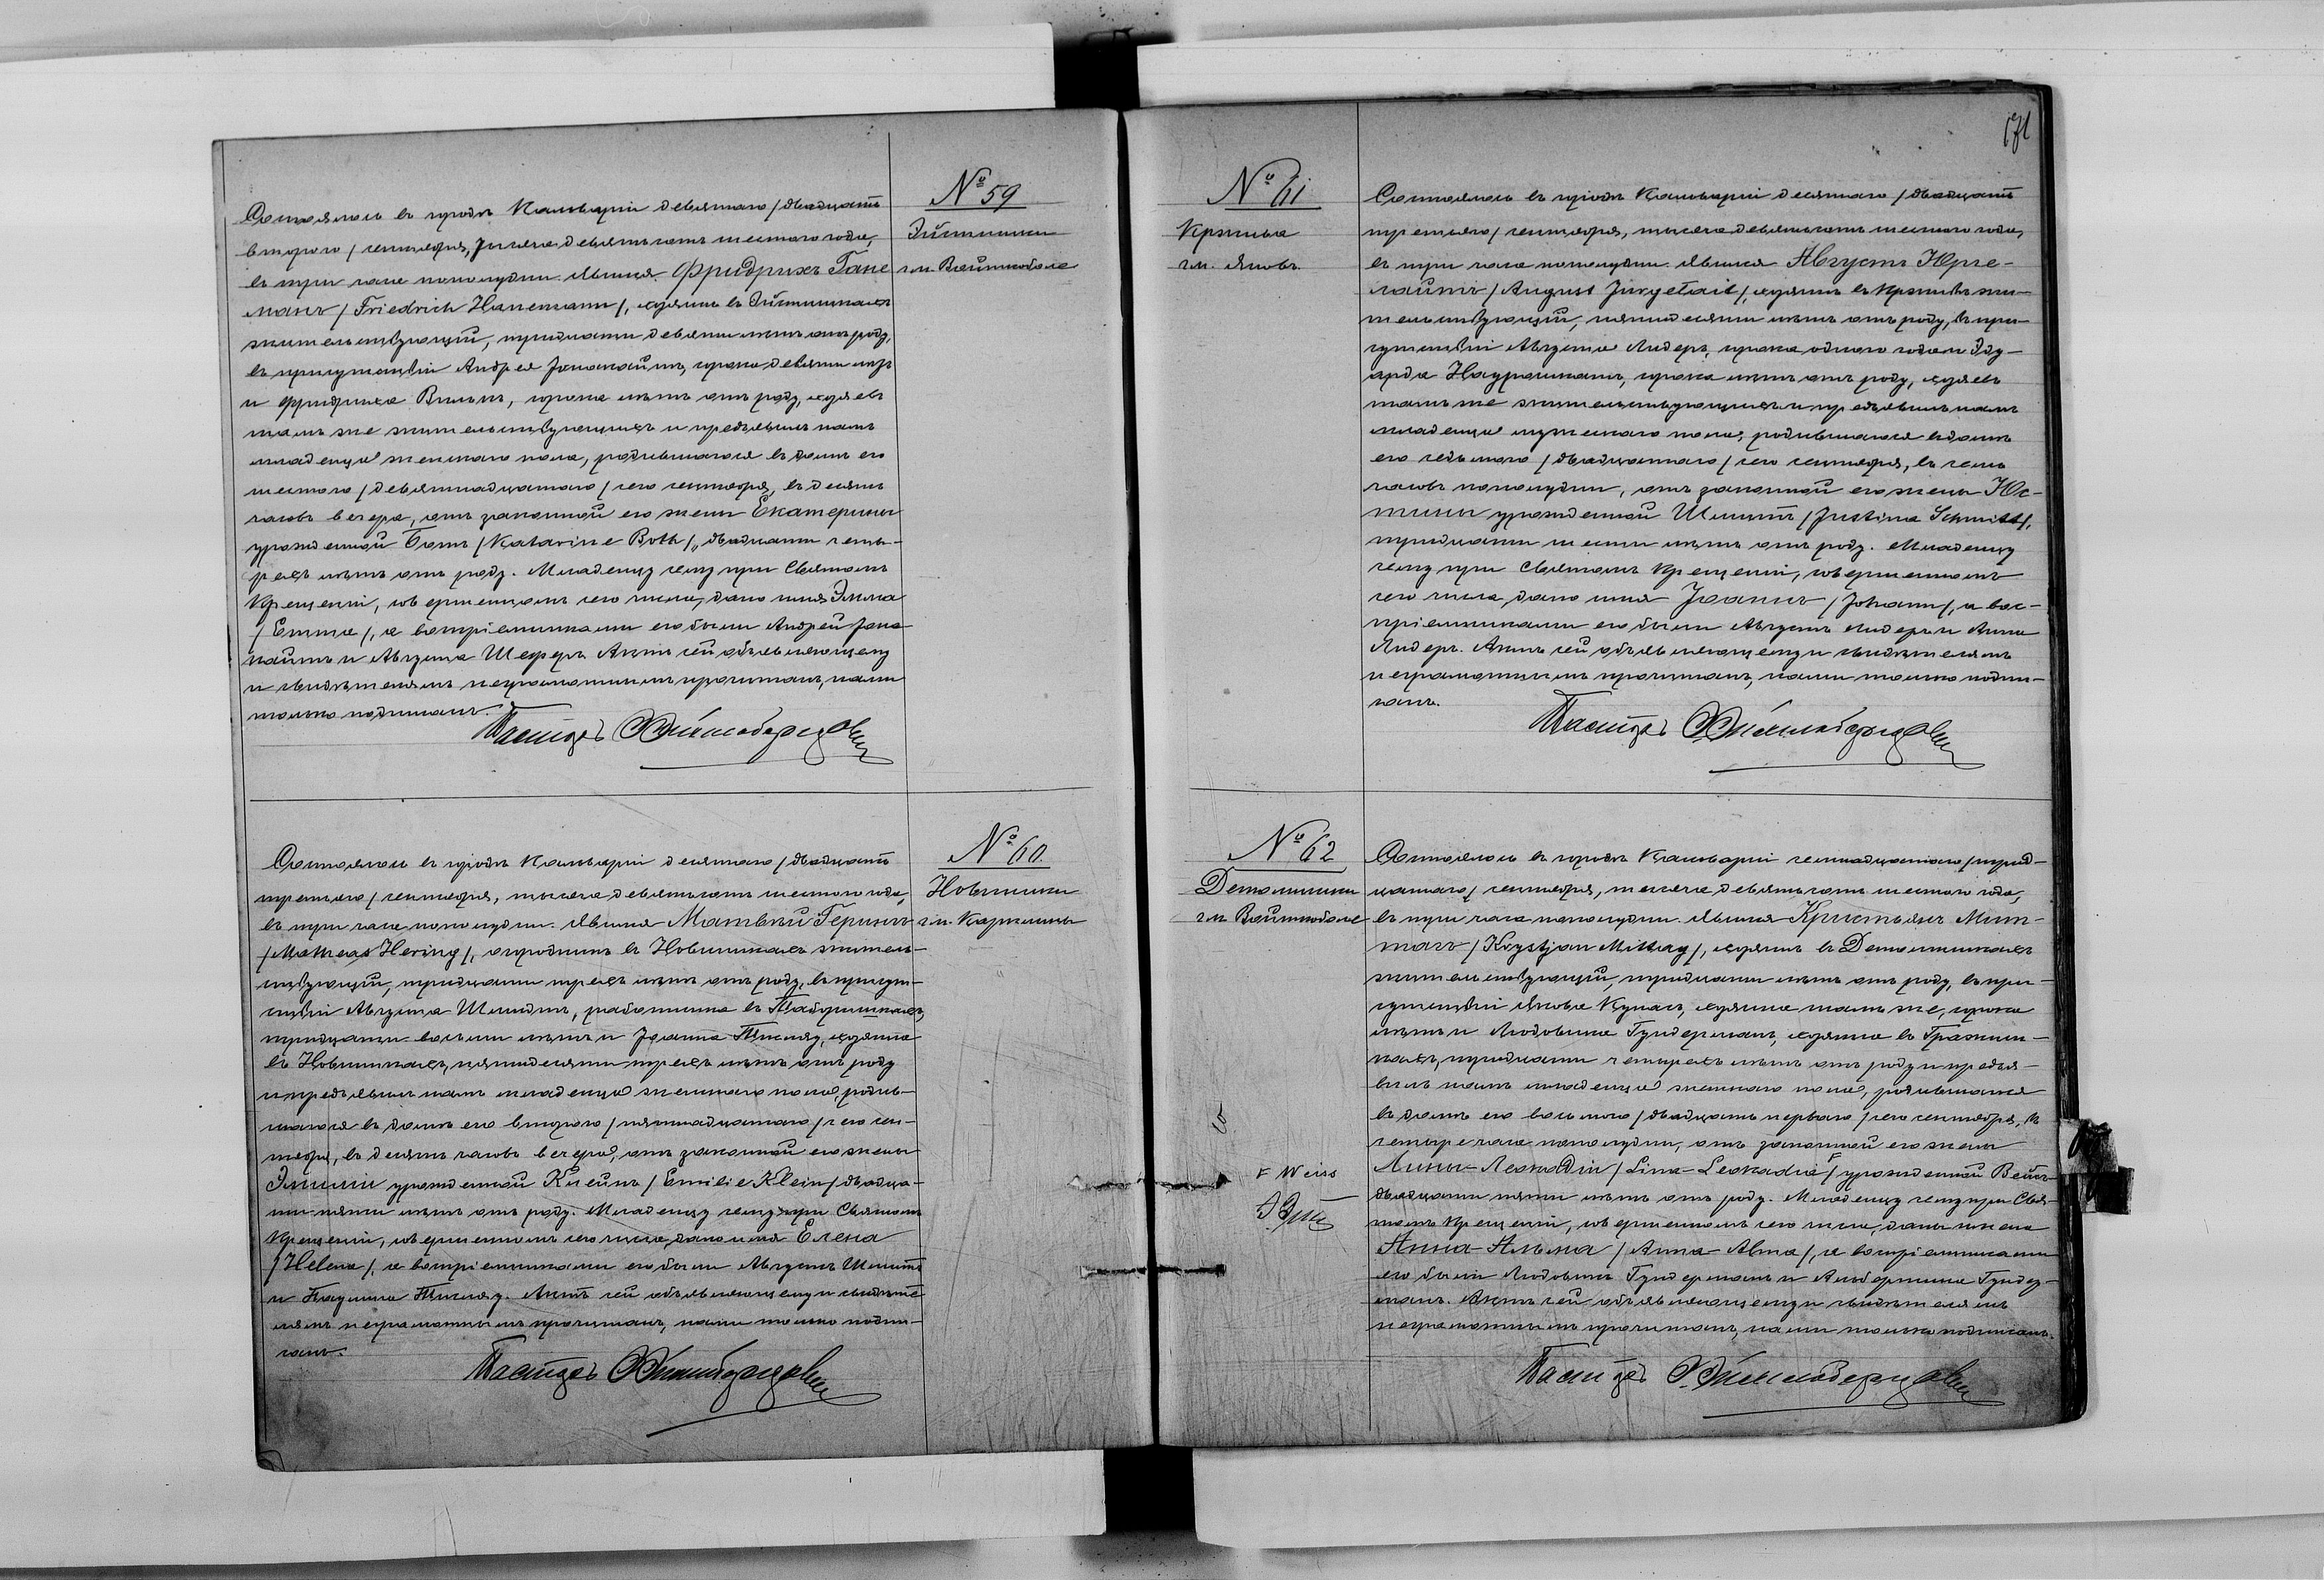 № 59
Эйстишки
гм. Войткобole
Состоялось въ городѣ Кальваріи девятаго /двадцать
второго/ сентября, тысяча девятьсотъ шестого года,
въ три часа пополудни. Явился Фридрихъ Гане
манъ /Friedrich Hanemann/, хозяинъ въ Эйстишкахъ
жительствующій, тридцати девяти лѣтъ отъ роду,
въ присутствіи Андрея Іонатайтъ, сорока девяти лѣтъ
и Фридриха Вильнъ, сорока лѣтъ отъ роду, хозяевъ
тамъ же жительствующихъ и предъявилъ намъ
младенца женскаго пола, родившагося въ домѣ его
шестого /девятнадцатаго/ сего сентября, въ десять
часовъ вечера, отъ законной его жены Екатерины
урожденной Ботъ /Katarine Both/, двадцати четы-
рехъ лѣтъ отъ роду. Младенцу сему при Святомъ
Крещеніи, совершенномъ сего числа, дано имя Эмма
/Emma/, а воспріемниками его были Андрей Іона
тайтъ и Августа Шеферъ. Актъ сей объявляющему
и свидѣтелямъ неграмотнымъ прочитанъ, нами
только подписанъ.
Пасторъ
№ 60
Новишки
гм. Каржмины
Состоялось въ городѣ Кальваріи десятаго /двадцать
третьяго/ сентября, тысяча девятьсотъ шестого года,
въ три часа пополудни. Явился Матвѣй Герингъ
/Matheas Hering/, огородникъ въ Новишкахъ житель-
ствующій, тридцати трехъ лѣтъ отъ роду, въ присут-
ствіи Августа Шмидтъ, работника въ
тридцати восьми лѣтъ и хозяина
въ Новишкахъ, пятидесяти трехъ лѣтъ отъ роду
и предъявилъ намъ младенца женскаго пола, родив-
шагося въ домѣ его второго /пятнадцатаго/ сего сен-
тября, въ десять часовъ вечера, отъ законной его жены
Эмиліи урожденной Клейнъ /Emilie Klein/ двадца-
ти пяти лѣтъ отъ роду. Младенцу сему при Святомъ
Крещеніи, совершенномъ сего числа, дано имя Елена
/Helena/, а воспріемниками его были Августъ Шмитъ
и Паулина Актъ сей объявляющему и свидѣте
лямъ неграмотнымъ прочитанъ, нами только подпи-
санъ.
Пасторъ
171
№ 61
Кржива
гм. Яновъ
Состоялось въ городѣ Кальваріи десятаго /двадцать
третьяго/ сентября, тысяча девятьсотъ шестого года,
въ три часа пополудни. Явился Августъ Юрге-
лайтъ /August Jurgelait/, хозяинъ въ Крживѣ жи-
тельствующій, пятидесяти лѣтъ отъ роду, въ при-
сутствіи Августа Лидеръ, сорока одного года и Эду-
арда Наурошатъ, сорока лѣтъ отъ роду, хозяевъ
тамъ же жительствующихъ и предъявилъ намъ
младенца мужескаго пола, родившагося въ домѣ
его седьмого /двадцатаго/ сего сентября, въ семь
часовъ пополудни, отъ законной его жены Юс-
тины урожденной Шмитъ /Justina Schmitt/,
тридцати шести лѣтъ отъ роду. Младенцу
сему при Святомъ Крещеніи, совершенномъ
сего числа, дано имя Іоаннъ /Johann/, а вос-
пріемниками его были Августъ Лидеръ и Анна
Лидеръ. Актъ сей объявляющему и свидѣтелямъ
неграмотнымъ прочитанъ, нами только подпи-
санъ.
Пасторъ
№ 62
Деталишки
гм. Войткобole
Состоялось въ городѣ Кальваріи семнадцатаго /трид-
цатаго/ сентября, тысяча девятьсотъ шестого года,
въ три часа пополудни. Явился Кристьянъ Мит-
тагъ /Krystjan Mittag/, хозяинъ въ Деталишкахъ
жительствующій, тридцати лѣтъ отъ роду, въ при-
сутствіи Якова Кунатъ, хозяина тамъ же, сорока
лѣтъ и Людовика Гундерманъ, хозяина въ Гражиш-
кахъ, тридцати четырехъ лѣтъ отъ роду и предъя-
вилъ намъ младенца женскаго пола, родившагося
въ домѣ его восьмого /двадцать перваго/ сего сентября, въ
четыре часа пополудни, отъ законной его жены
Лины-Леокадіи /Lina-Leokadia F/ урожденной Вейсъ
двадцати пяти лѣтъ отъ роду. Младенцу сему при Свя-
томъ Крещеніи, совершенномъ сего числа, даны имена
Анна-Альма /Anna-Alma/, а воспріемниками
его были Людовикъ Гундерманъ и Альбертина Гундер-
манъ. Актъ сей объявляющему и свидѣтелямъ
неграмотнымъ прочитанъ, нами только подписанъ.
F Weiss
Пасторъ